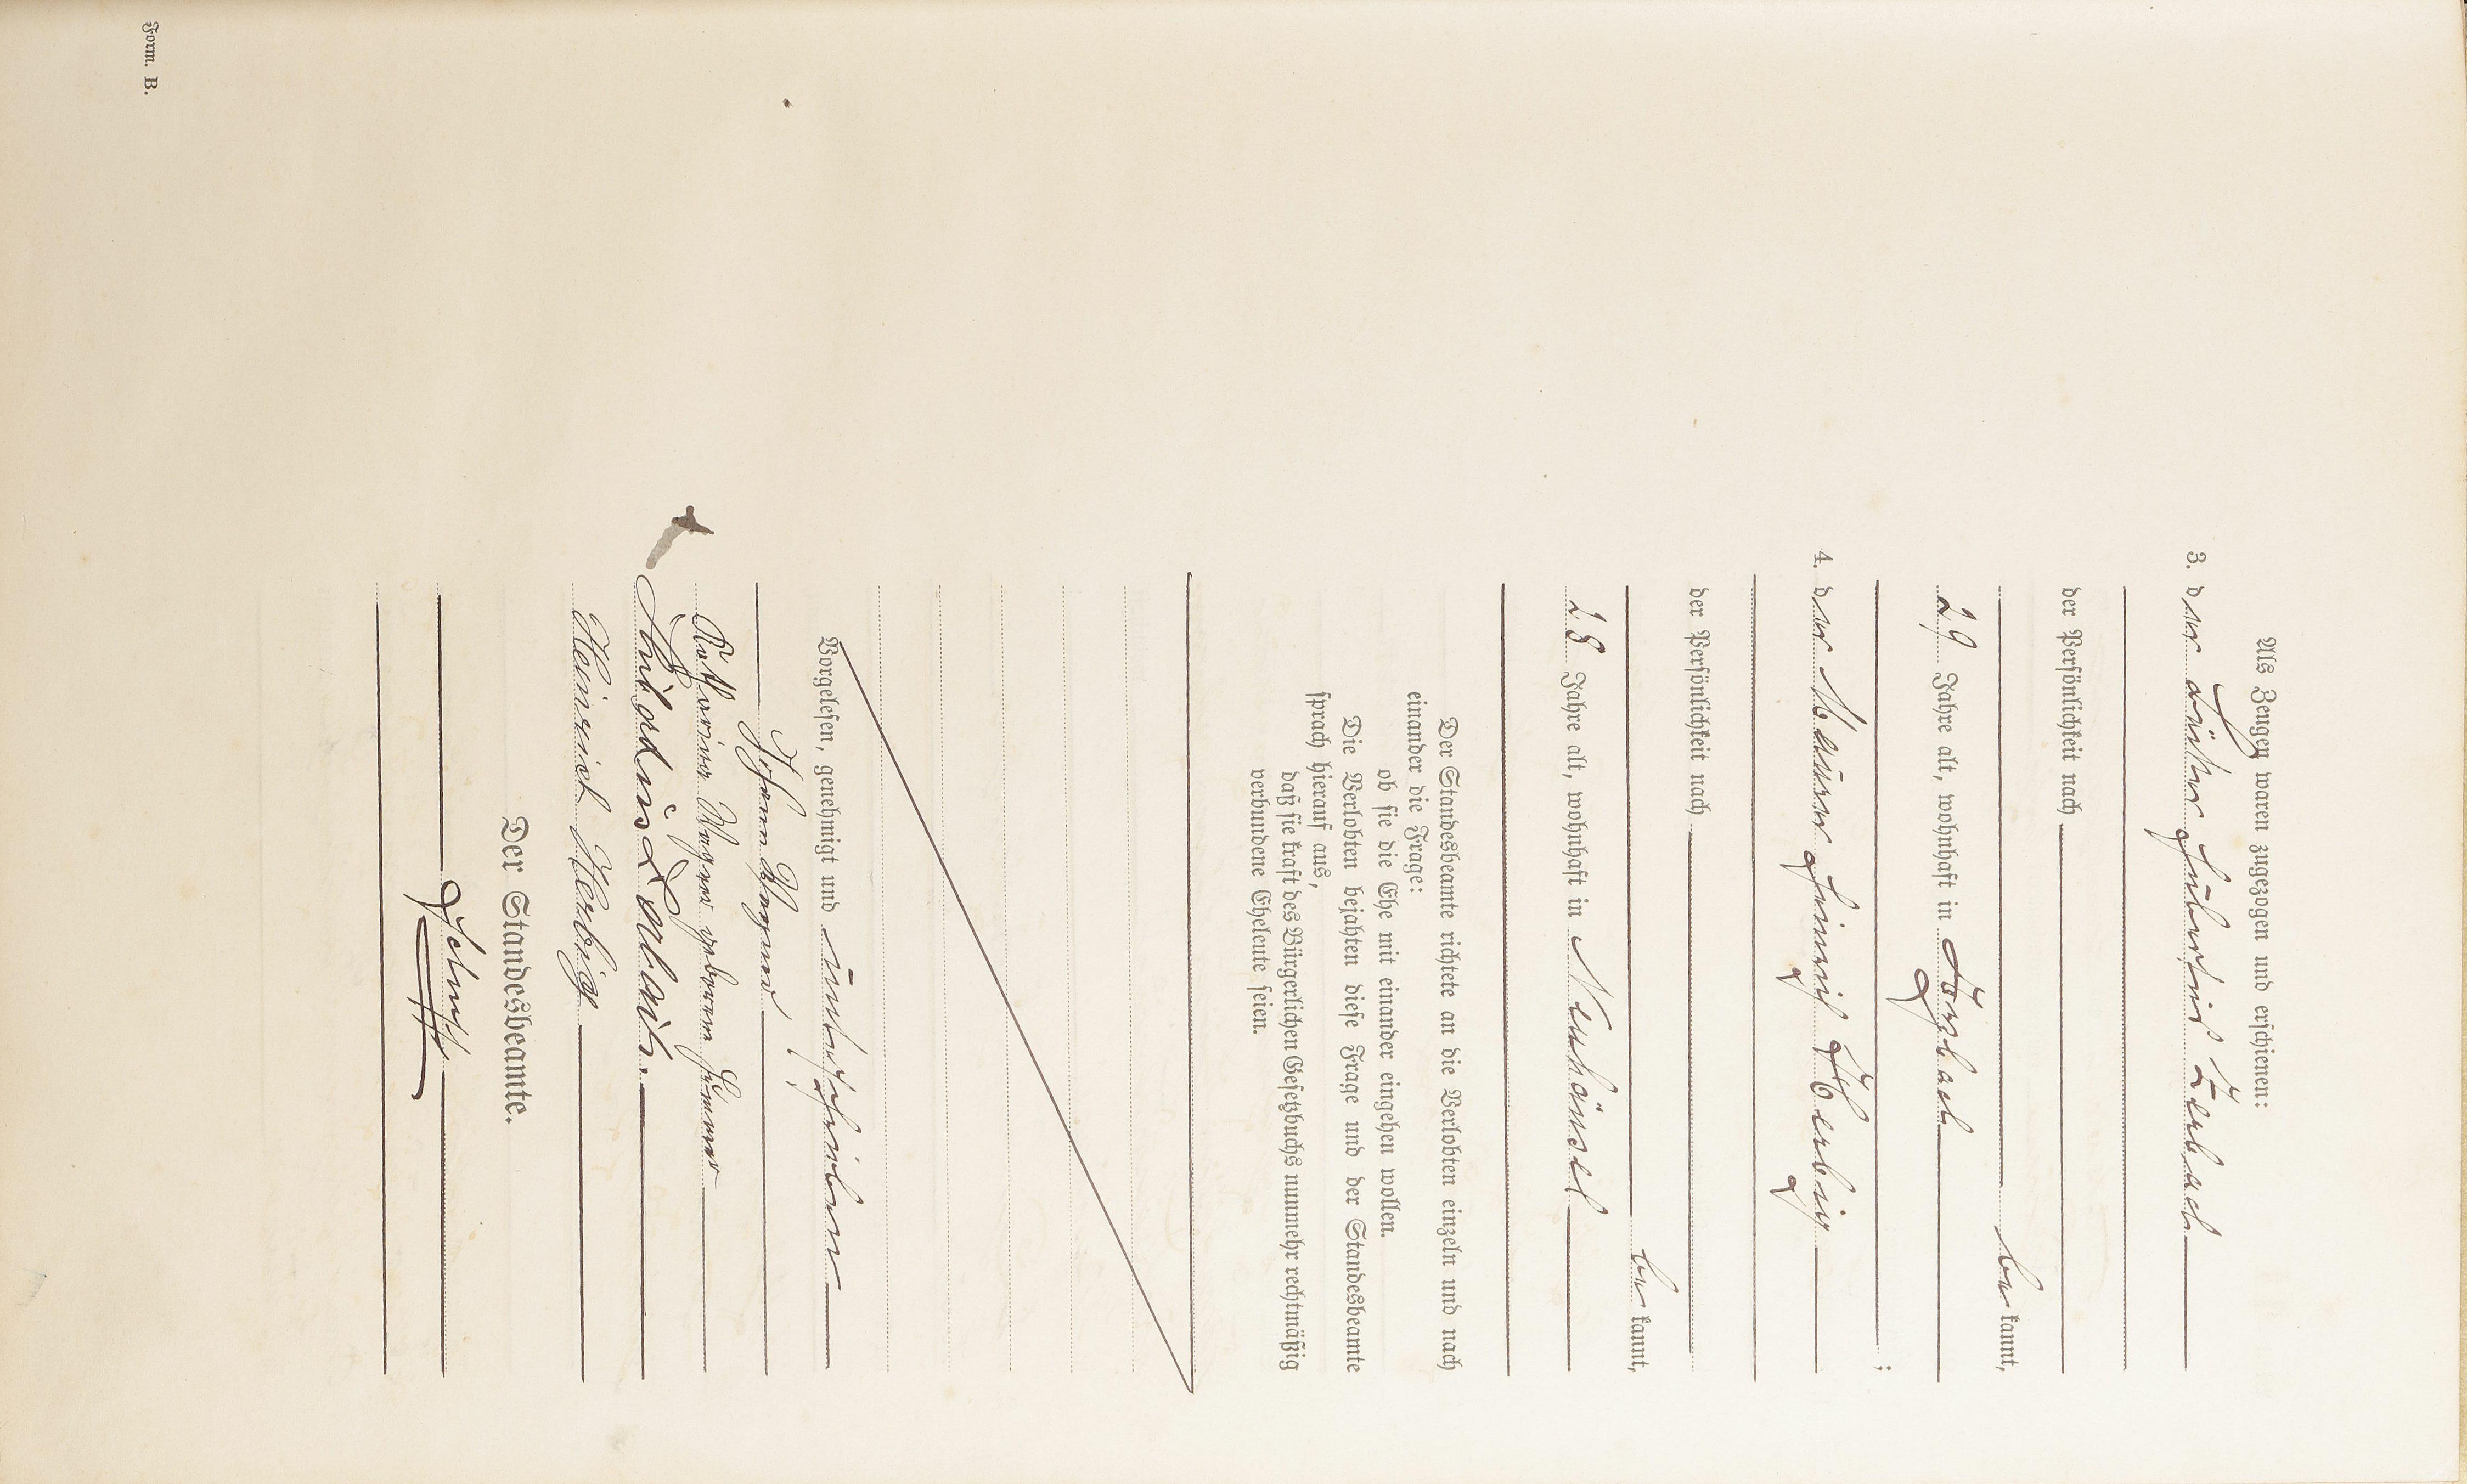 Als Zeugen waren zugezogen und erschienen:
3. der Hubertus Zerbach
der Persönlichkeit nach
be kannt,
29 Jahre alt, wohnhaft in
;
4. der Maurer Heinrich Herbig
der Persönlichkeit nach
be kannt,
28 Jahre alt, wohnhaft in Neuhäusel
Der Standesbeamte richtete an die Verlobten einzeln und nach
einander die Frage:
ob sie die Ehe mit einander eingehen wollen.
Die Verlobten bejahten diese Frage und der Standesbeamte
sprach hierauf aus,
daß sie kraft des Bürgerlichen Gesetzbuchs nunmehr rechtmäßig
verbundene Eheleute seien.
Vorgelesen, genehmigt und unterschrieben
Johann Wagner
Katharina Wagner geborene
Heinrich Herbig
Der Standesbeamte.
Form. B.